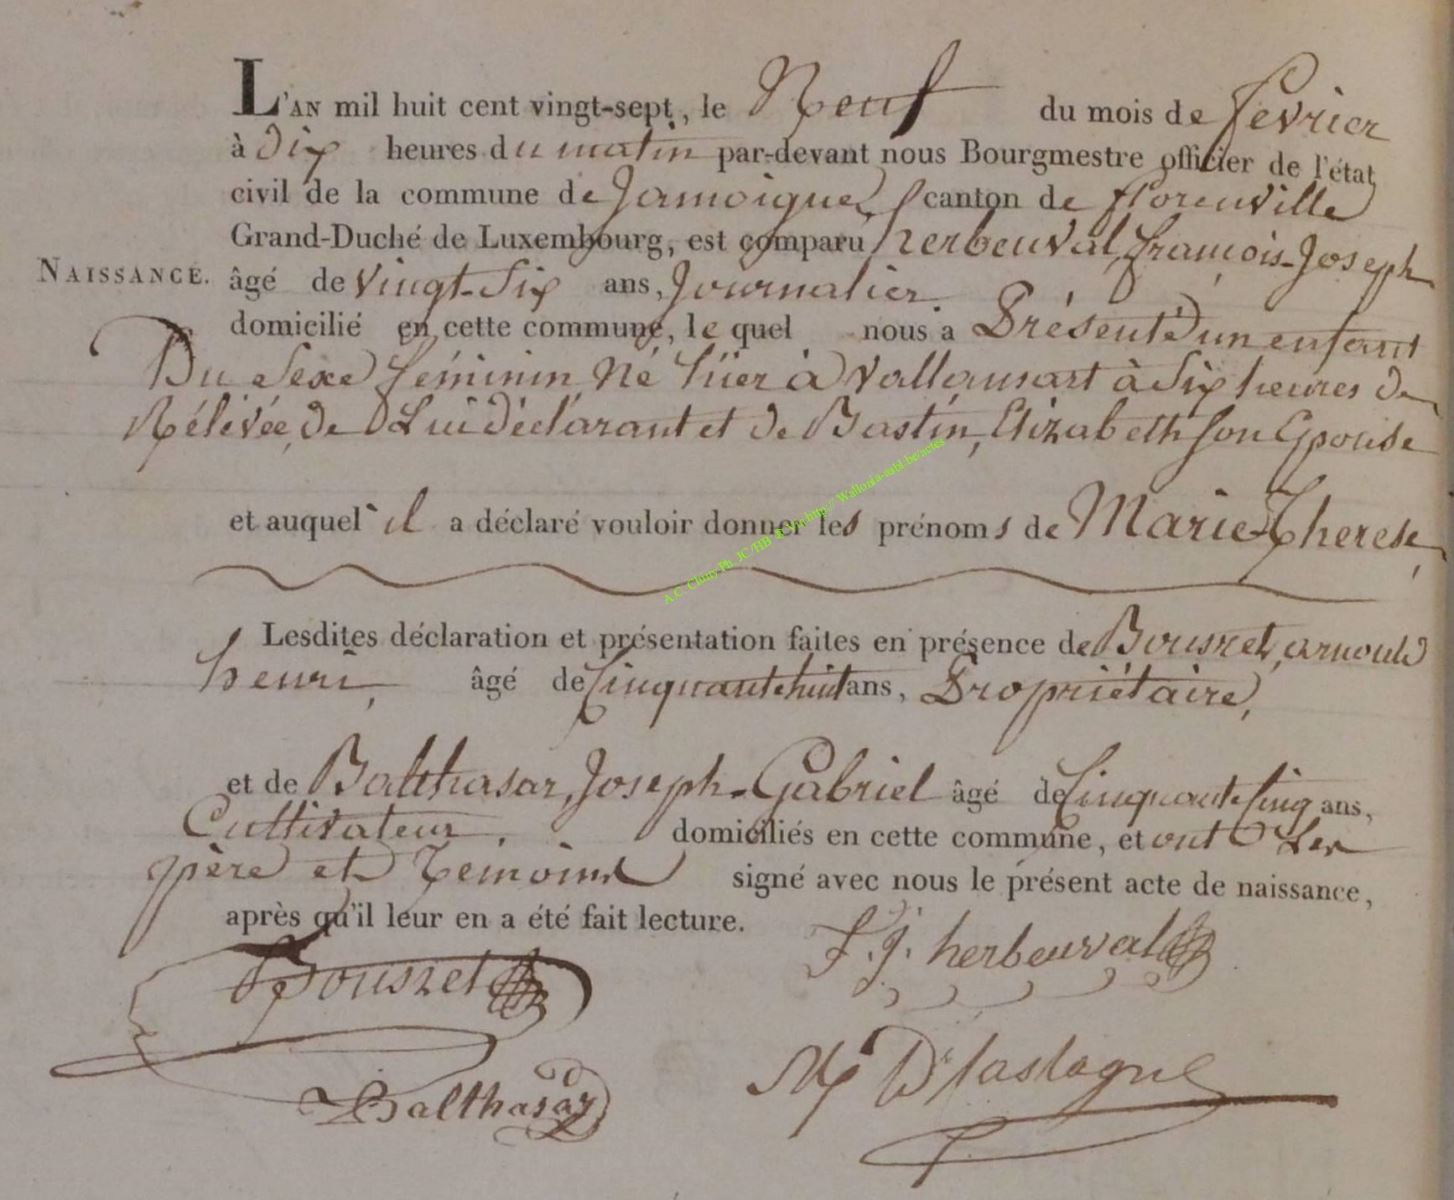 L'AN mil huit cent vingt-sept, le Neuf du mois de fevrier
à dix heures du matin par-devant nous Bourgmestre officier de l'état
civil de la commune de Jamoigne, canton de florenville
Grand-Duché de Luxembourg, est comparu herbeuval, françois-Joseph
NAISSANCE. âgé de vingt-Six ans, Journalier
domicilié en cette commune, lequel nous a Présenté un enfant
Du Sexe féminin Né hier à Vallansart à Six heures de
Rélévée, de Lui déclarant et de Bastin, Elizabeth Son Epouse
et auquel il a déclaré vouloir donner les prénoms de Marie-Therese,
Lesdites déclaration et présentation faites en présence de Bousret, arnould
henri, âgé de Cinquante huit ans, Propriétaire,
et de Balthasar, Joseph-Gabriel âgé de Cinquante Cinq ans,
Cultivateur, domiciliés en cette commune, et ont Les
père et Témoins signé avec nous le présent acte de naissance,
après qu'il leur en a été fait lecture.
F. J. herbeuval
Bousret
Balthasar